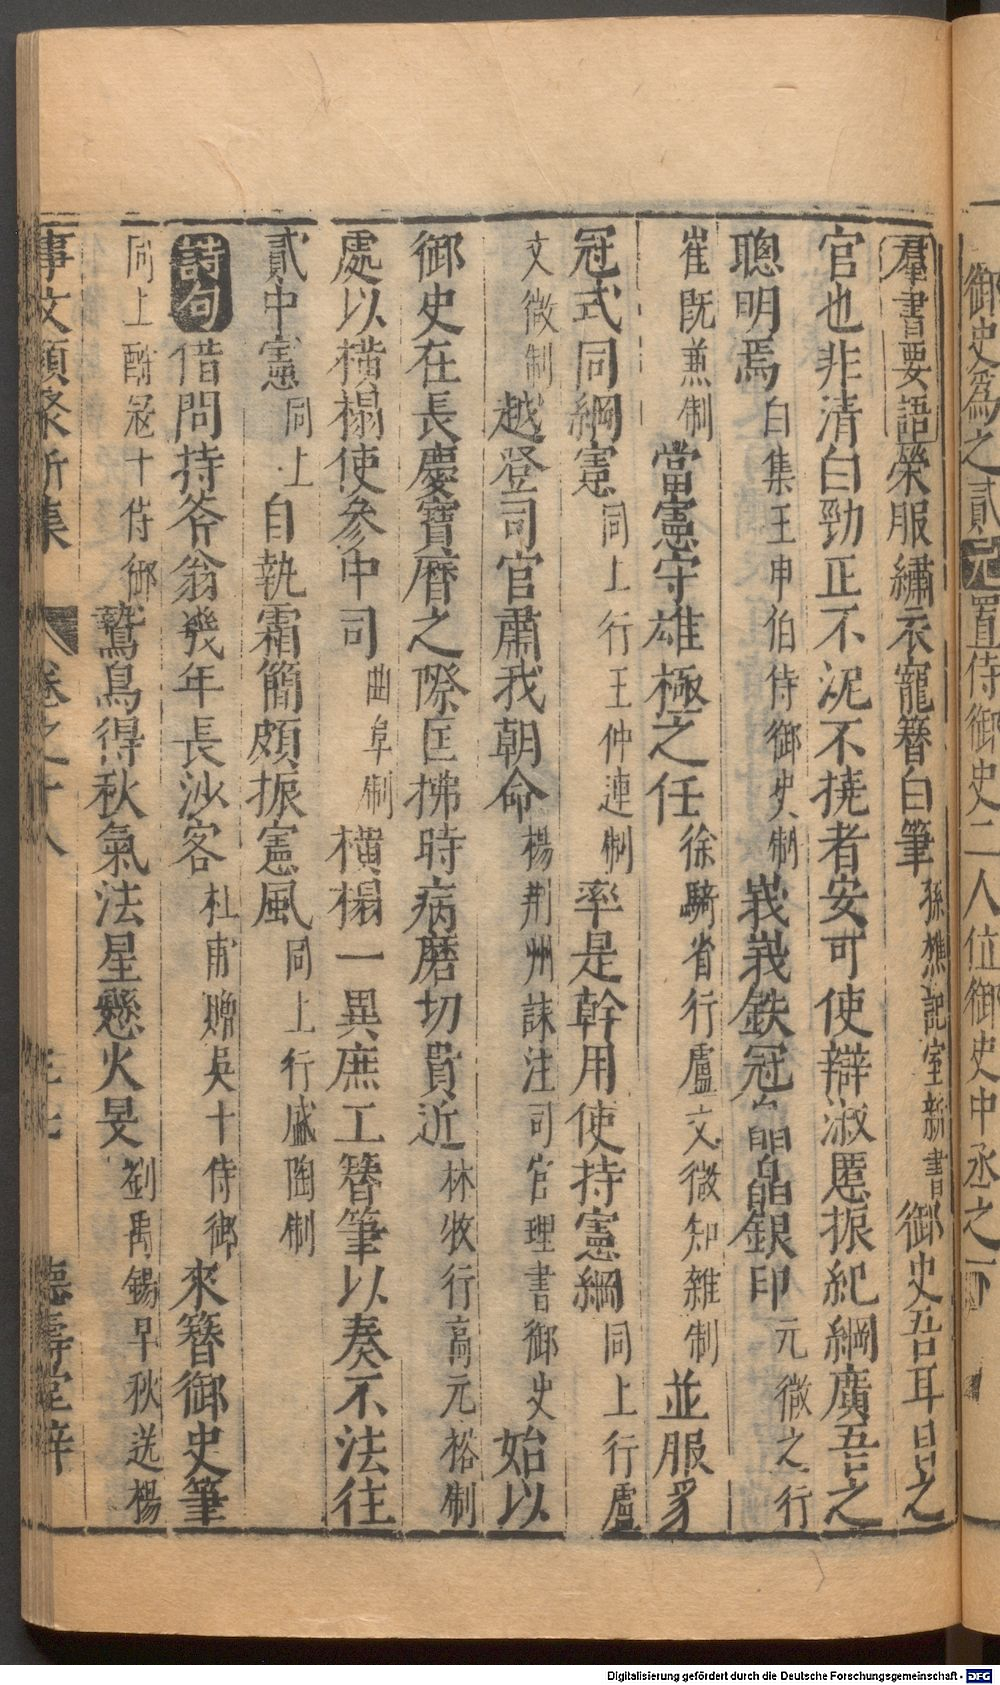 御史爲之貳元置侍御史二人位御史中丞之下
羣書要語榮服繡衣寵簪白筆孫樵記室新書御史吾耳目之
官也非清白勁正不泥不撓者安可使辯淑慝振紀綱廣吾之
聰明焉白集王申伯侍御史制峩峩鉄冠皛皛銀印元微之行
崔既兼制當憲守雄極之任徐騎省行盧文微知雜制並服豸
冠式同綱憲同上行王仲連制率是幹用使持憲綱同上行盧
文微制越登司官肅我朝命楊荆州誄注司官理書御史始以
御史在長慶寶曆之際匡拂時病磨切貴近林收行高元裕制
處以橫榻使參中司曲阜制橫榻一異庶工簪筆以奏不法往
貳中憲同上自執霜簡頗振憲風同上行盛陶制
詩句借問持斧翁幾年長沙客杜甫贈吳十侍御來簪御史筆
同上酧寇十侍御鷙鳥得秋氣法星懸火旻劉禹錫早秋送楊
事文類聚新集 卷之十八 德壽堂梓
Digitalisierung gefördert durch die Deutsche Forschungsgemeinschaft - DFG